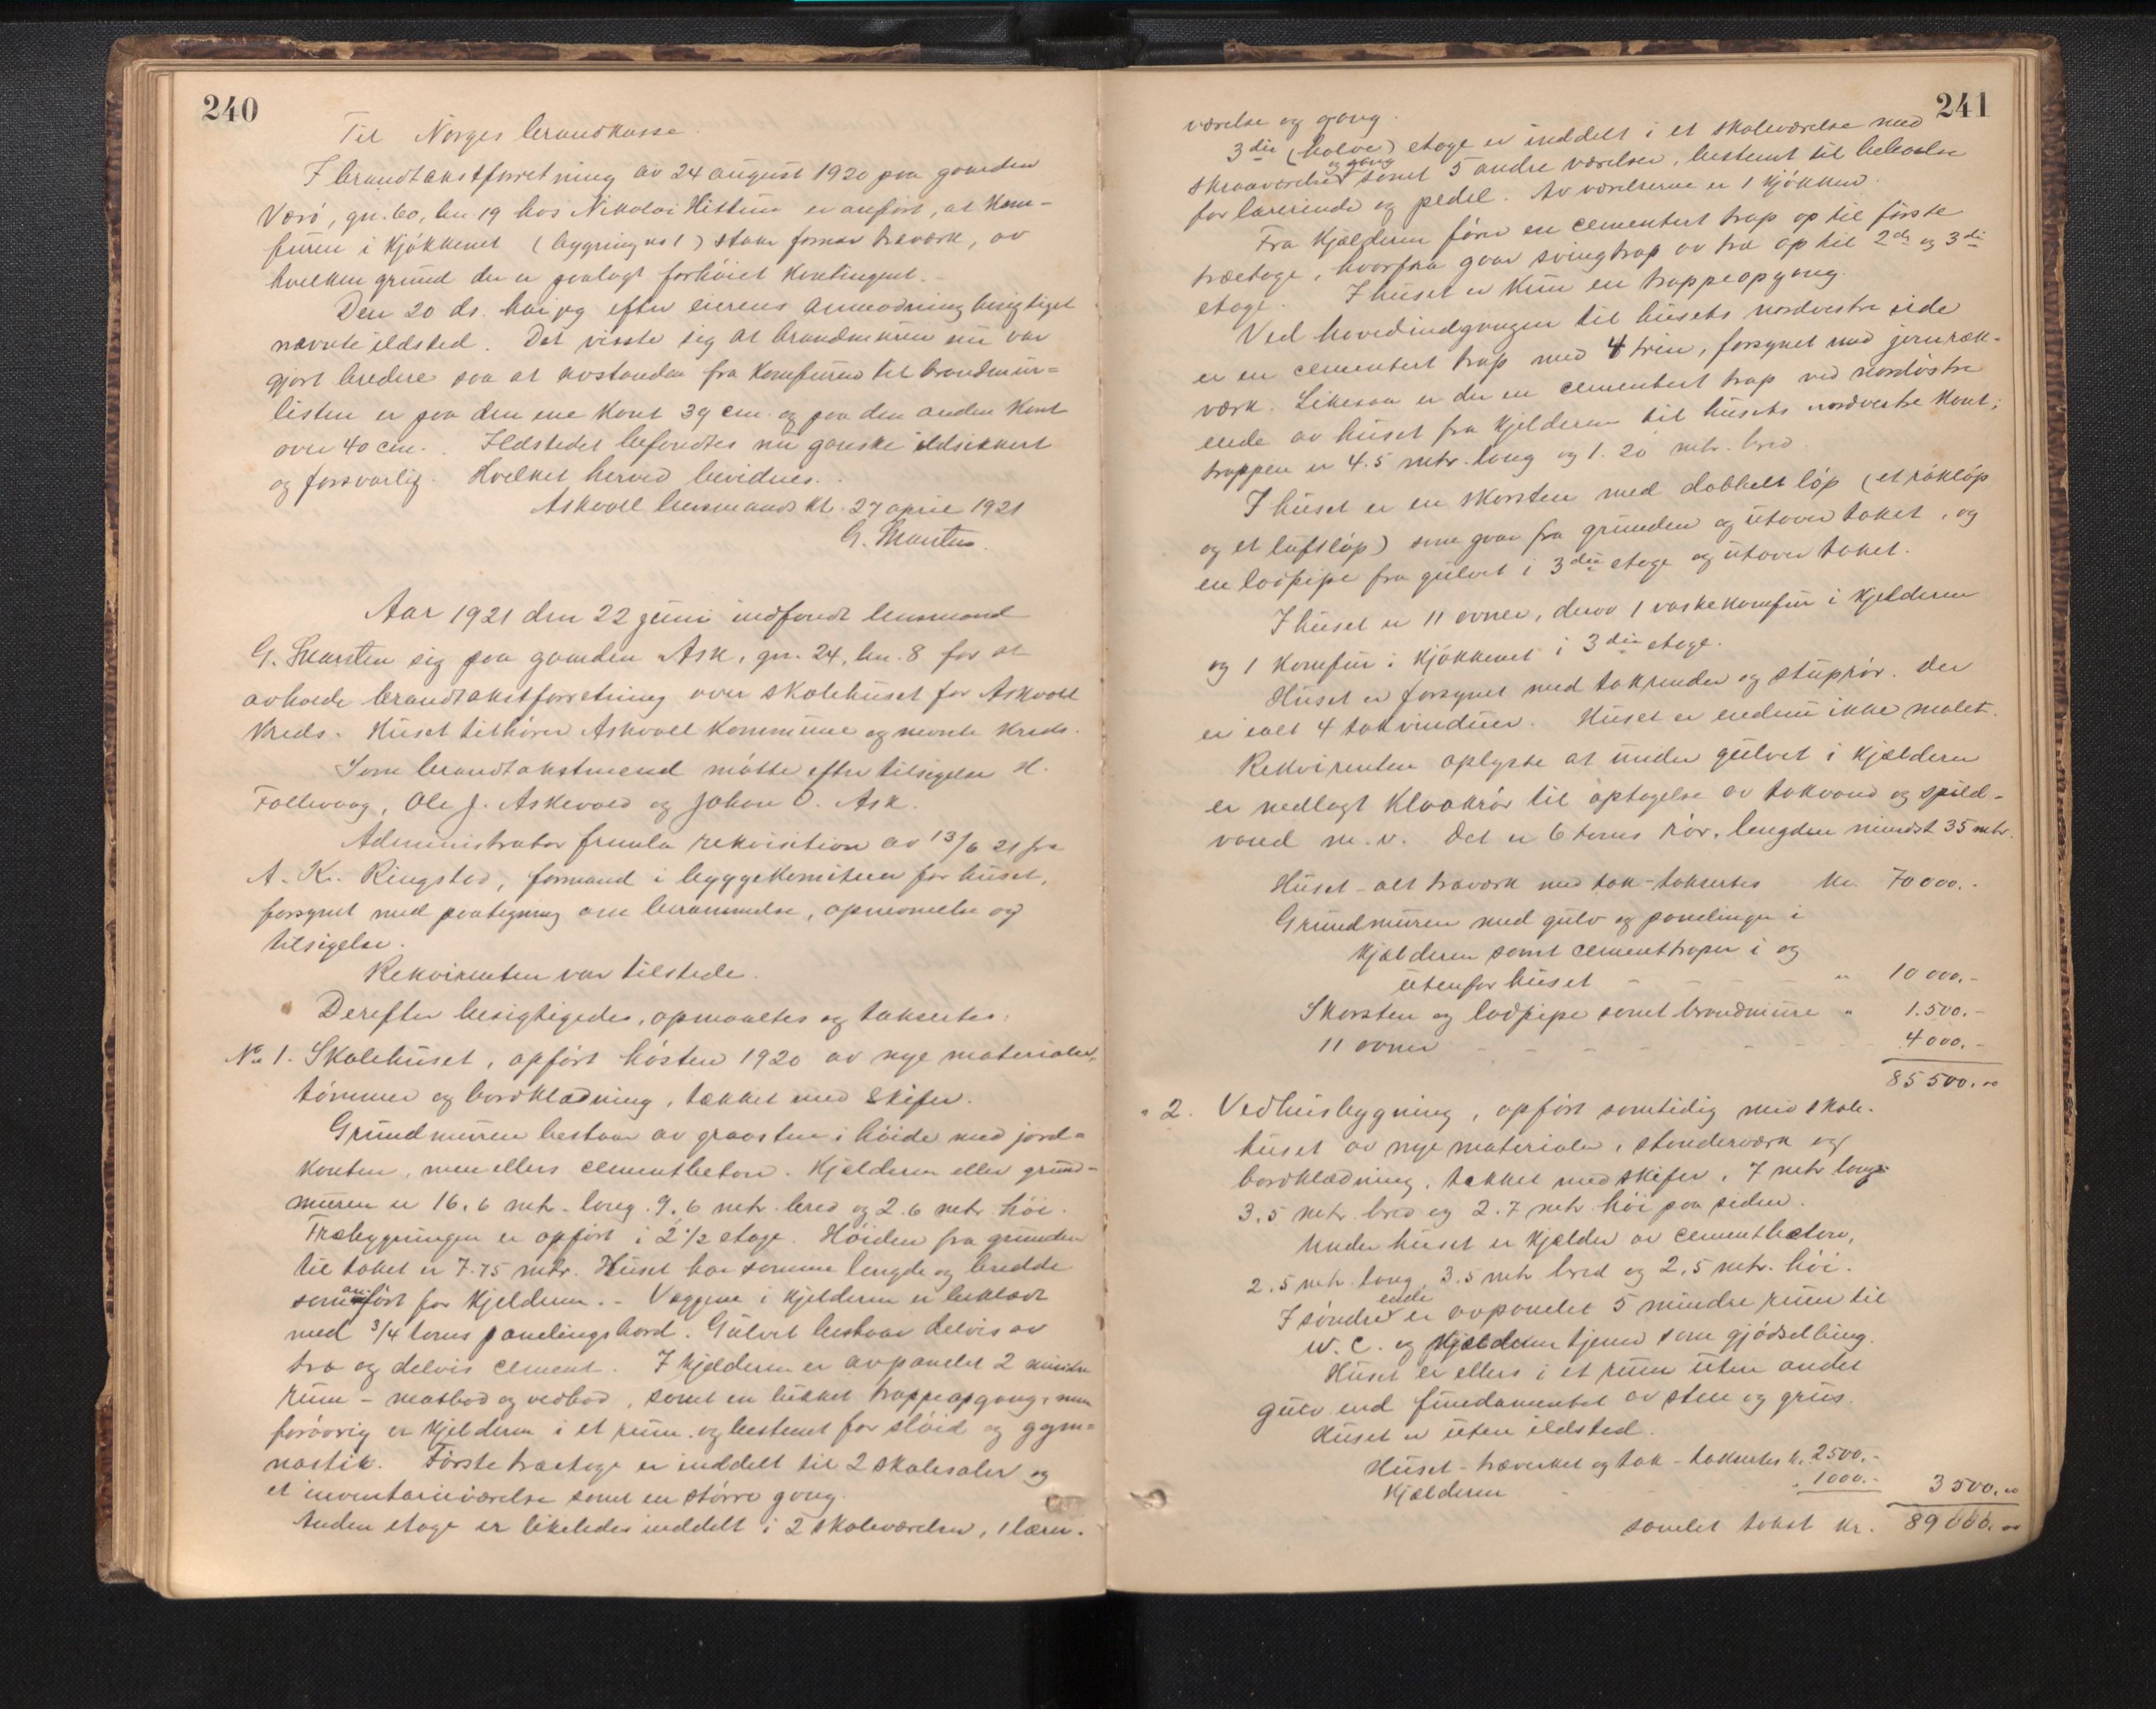 240
Til Norges brandkasse.
I brandtakstforretning av 24 august 1920 paa gaarden
Værö, gn. 60, bn. 19 hos Nikolai Hittun er anfört, at kom-
furen i kjökkenet (bygning no 1) staar for nær træværk, av
hvilken grund der er paalagt forhöiet kontingent. -
Den 20 ds. har jeg efter eierens anmodning besigtiget
nævnte ildsted. Det visste sig at brandmuren nu var
gjort bredere saa at avstanden fra komfuren til brandmur=
listen er paa den ene kant 39 cm. og paa den anden kant
over 40 cm. Ildstedet befandtes nu ganske ildsikkert
og forsvarlig. Hvilket herved bevidnes.
Askvoll lensmandskt. 27 april 1921
G. Skarsten.
Aar 1921 den 22 juni indfandt lensmand
G. Skarsten sig paa gaarden Ask, gn. 24, bn. 8 for at
avholde brandtakstforretning over skolehuset for Askvoll
kreds. Huset tilhörer Askvoll kommune og nævnte kreds.
Som brandtakstmænd mötte efter tilsigelse H.
Follevaag, Ole J. Askevold og Johan O. Ask.
Administrator fremla rekvisition av 13/6 21 fra
A. K. Ringstad, formand i byggekomiteen for huset,
forsynet med paategning om berammelse, opnævnelse og
tilsigelse.
Rekvirenten var tilstede.
Derefter besigtigedes, opmaaltes og taksertes:
No 1. Skolehuset, opfört hösten 1920 av nye materialer,
tömmer og bordklædning, tækket med skifer.
Grundmuren bestaar av graasten i höide med jord=
kanten, men ellers cementbeton. Kjælderen eller grund-
muren er 16,6 mtr. lang, 9,6 mtr. bred og 2.6 mtr. höi.
Træbygningen er opfört i 2 1/2 etage. Höiden fra grunden
til taket er 7.75 mtr. Huset har samme længde og bredde
som anfört for kjelderen. - Væggene i kjelderen er beklædt
med 3/4 toms panelingsbord. Gulvet bestaar delvis av
træ og delvis cement. I kjelderen er avpanelet 2 mindre
rum - matbod og vedbod, samt en lukket trappeopgang, men
forövrig er kjelderen i et rum og bestemt for slöid og gym=
nastik. Förste træetage er inddelt til 2 skolesaler og
et inventarieværelse samt en större gang.
Anden etage er likeledes inddelt i 2 skoleværelser, 1 lærer-
241
værelse og gang.
3die (halve) etage er inddelt i et skoleværelse med
skraaværelse og gang samt 5 andre værelser, bestemt til beboelse
for lærerinde og pedel. Av værelserne er 1 kjökken.
Fra kjælderen förer en cementert trap op til förste
træetage, hvorfra gaar svingtrap av træ op til 2den og 3die
etage. I huset er kun en trappeopgang.
Ved hovedindgangen til husets nordvestre side
er en cementert trap med 4 trin, forsynet med jernræk-
værk. Likesaa er der en cementert trap ved nordöstre
ende av huset fra kjelderen til husets nordvestre kant;
trappen er 4.5 mtr. lang og 1.20 mtr. bred.
I huset er en skorsten med dobbelt löp (et röklöp
og et luftlöp) som gaar fra grunden og utover taket, og
en lodpipe fra gulvet i 3die etage og utover taket.
I huset er 11 ovner, derav 1 vaskekomfur i kjelderen
og 1 komfur i kjökkenet i 3die etage.
Huset er forsynet med takrender og stuprör. Der
er ialt 4 takvinduer. Huset er endnu ikke malet.
Rekvirenten oplyste at under gulvet i kjælderen
er nedlagt kloakrör til optagelse av takvand og spild-
vand m. v. Det er 6 toms rör, længden mindst 35 mtr.
Huset - alt træværk med tak - taksertes kr. 70000.-
Grundmuren med gulv og panelinger i
kjælderen samt cementtraper i og
utenfor huset - - - - - " 10 000.-
Skorsten og lodpipe samt brandmure " 1.500.-
11 ovner - - - - - - - 4000.-
85500.00
" 2. Vedhusbygning, opfört samtidig med skole-
huset av nye materialer, stenderværk og
bordklædning, tækket med skifer, 7 mtr lang
3.5 mtr. bred og 2.7 mtr. höi paa siden.
Under huset er kjælder av cementbeton,
2.5 mtr. lang, 3.5 mtr. bred og 2.5 mtr. höi.
I söndre ende er avpanelet 5 mindre rum til
W. C. og kjælderen tjener som gjödselbing.
Huset er ellers i et rum uten andet
gulv end fundamentet av sten og grus.
Huset er uten ildsted.
Huset - træverket og tak - taksertes kr. 2500.-
Kjælderen - - - " 1000.- 3500.00
samlet takst kr. 89000.00